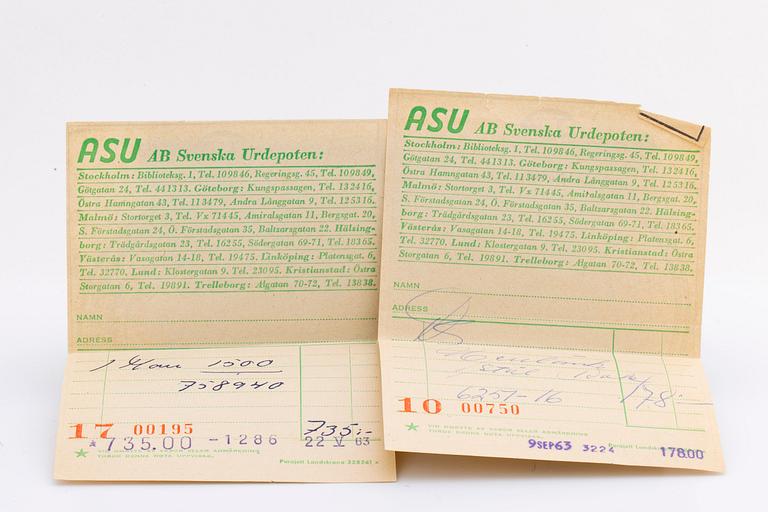 ASU AB Svenska Urdepoten:
Stockholm: Biblioteksg. 1, Tel. 109846, Regeringsg. 45, Tel. 109849,
Götgatan 24, Tel. 441313. Göteborg: Kungspassagen, Tel. 132416,
Östra Hamngatan 43, Tel. 113479, Andra Långgatan 9, Tel. 125316.
Malmö: Stortorget 3, Tel. Vx 71445, Amiralsgatan 11, Bergsgat. 20,
S. Förstadsgatan 24, Ö. Förstadsgatan 35, Baltzarsgatan 22. Hälsing-
borg: Trädgårdsgatan 23, Tel. 16255, Södergatan 69-71, Tel. 18365.
Västerås: Vasagatan 14-18, Tel. 19475. Linköping: Platensgat. 6,
Tel. 32770. Lund: Klostergatan 9. Tel. 23095. Kristianstad: Östra
Storgatan 6, Tel. 19891. Trelleborg: Algatan 70-72, Tel. 13838.
NAMN
ADRESS
1 1500
758940
17 00195
735:-
*735.00 -1286 22 V 63
VID OMBYTE AV VAROR ELLER ANMÄRKNING
TORDE DENNA NOTA UPPVISAS.
Parajett Landskrona 328261
ASU AB Svenska Urdepoten:
Stockholm: Biblioteksg. 1, Tel. 109846, Regeringsg. 45, Tel. 109849,
Götgatan 24, Tel. 441313. Göteborg: Kungspassagen, Tel. 132416,
Östra Hamngatan 43, Tel. 113479, Andra Långgatan 9, Tel. 125316.
Malmö: Stortorget 3, Tel. Vx 71445, Amiralsgatan 11, Bergsgat. 20,
S. Förstadsgatan 24, Ö. Förstadsgatan 35, Baltzarsgatan 22. Hälsing-
borg: Trädgårdsgatan 23, Tel. 16255, Södergatan 69-71, Tel. 18365.
Västerås: Vasagatan 14-18, Tel. 19475. Linköping: Platensgat. 6,
Tel. 32770. Lund: Klostergatan 9. Tel. 23095. Kristianstad: Östra
Storgatan 6, Tel. 19891. Trelleborg: Algatan 70-72, Tel. 13838.
NAMN
ADRESS
6251-16 178:-
10 00750
VID OMBYTE AV VAROR ELLER ANMÄRKNING
TORDE DENNA NOTA UPPVISAS.
Parajett Landskrona
9SEP63 3224 178.00